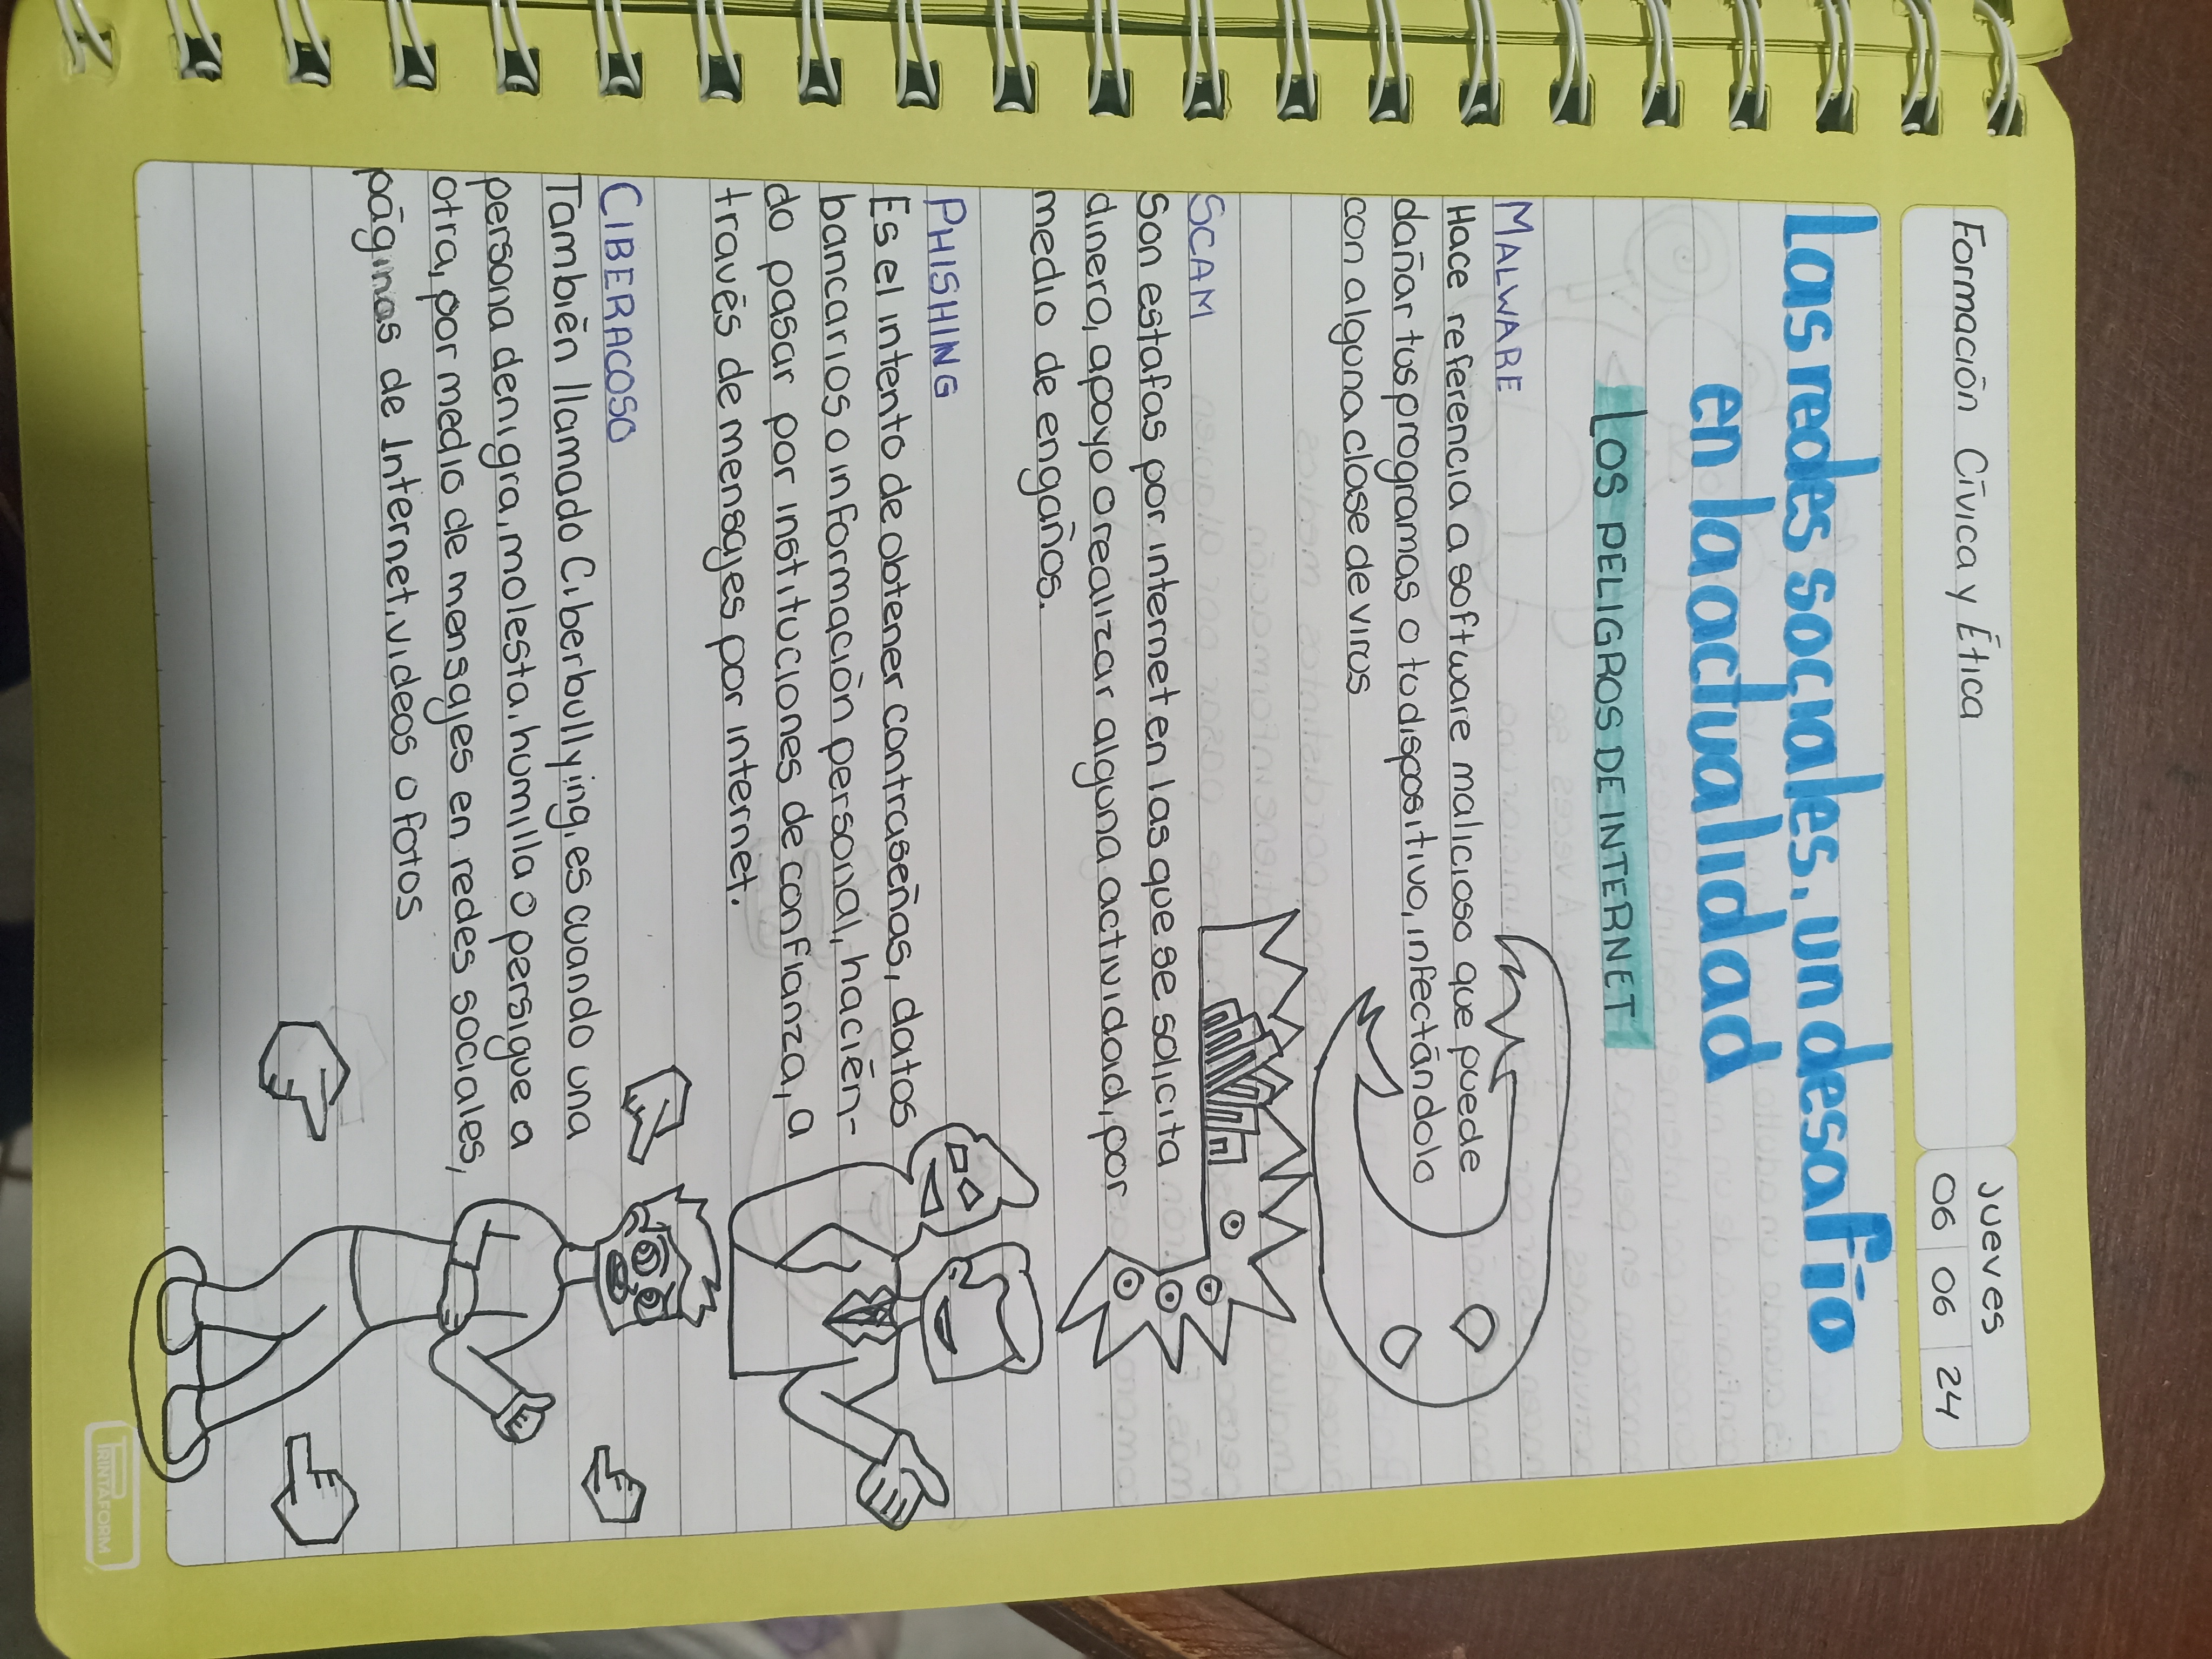 Formación Cívica y Ética
Jueves
06 06 24
Las redes sociales, un desafío
en la actualidad
LOS PELIGROS DE INTERNET
MALWARE
Hace referencia a software malicioso que puede
dañar tus programas o tu dispositivo, infectándolo
con alguna clase de virus
SCAM
Son estafas por internet en las que se solicita
dinero, apoyo o realizar alguna actividad, por
medio de engaños.
PHISHING
Es el intento de obtener contraseñas, datos
bancarios o información personal, hacién-
do pasar por instituciones de confianza, a
través de mensajes por internet.
CIBERACOSO
También llamado Ciberbullying, es cuando una
persona denigra, molesta, humilla o persigue a
otra, por medio de mensajes en redes sociales,
páginas de Internet, videos o fotos
PRINTAFORM